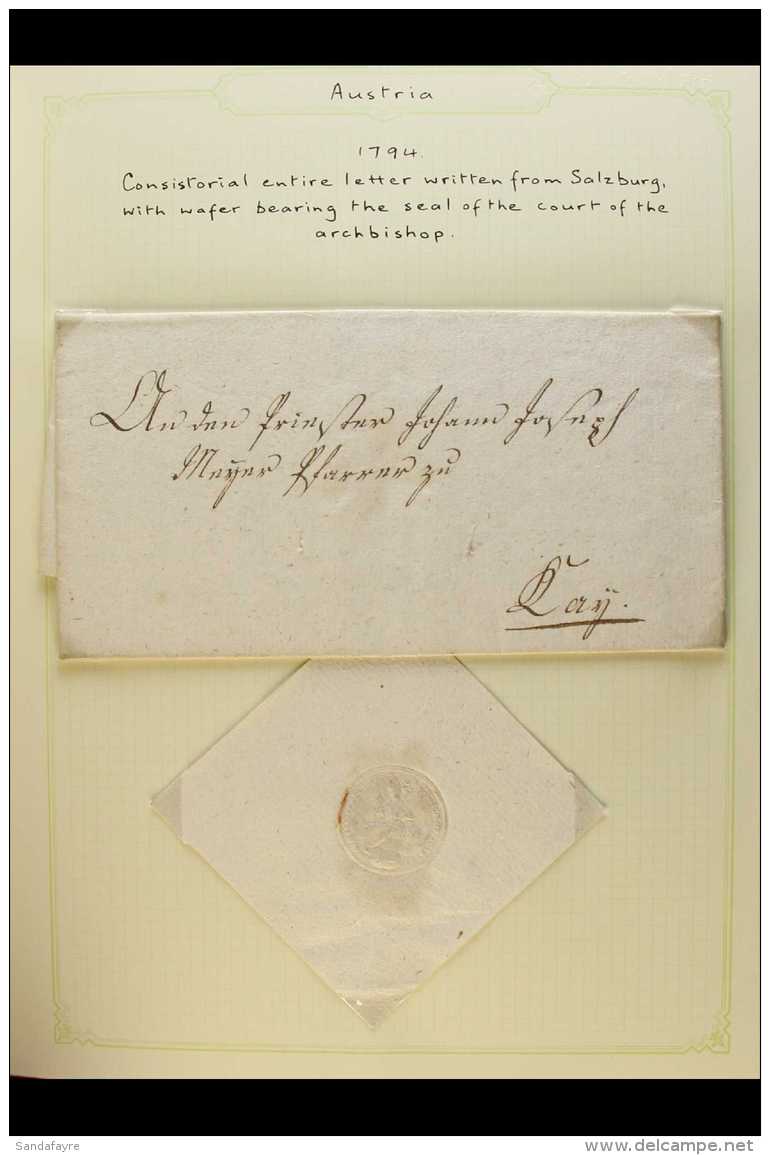 Austria
1794.
Consistorial entire letter written from Salzburg,
with wafer bearing the seal of the court of the
archbishop.
An den Priester Johann Joseph
Meÿer Pfarrer zu
Kaÿ.
Sandafayre
www.delcampe.net